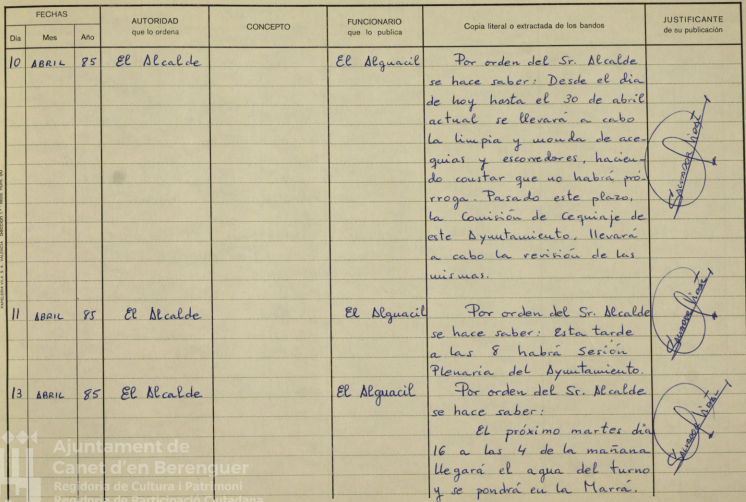 FECHAS
Dia Mes Año
AUTORIDAD
que lo ordena
CONCEPTO
FUNCIONARIO
que lo publica
Copia literal o extractada de los bandos
JUSTIFICANTE
de su publicación
10 ABRIL 85 El Alcalde El Alguacil Por orden del Sr. Alcalde
se hace saber: Desde el dia
de hoy hasta el 30 de abril
actual se llevará a cabo
la limpia y monda de ace-
quias y escorredores, hacien-
do constar que no habrá pró-
rroga. Pasado este plazo,
la Comisión de Cequiaje de
este Ayuntamiento, llevará
a cabo la revisión de las
mismas.
11 ABRIL 85 El Alcalde El Alguacil Por orden del Sr. Alcalde
se hace saber: Esta tarde
a las 8 habrá Sesión
Plenaria del Ayuntamiento.
13 ABRIL 85 El Alcalde El Alguacil Por orden del Sr. Alcalde
se hace saber:
El próximo martes dia
16 a las 4 de la mañana
llegará el agua del turno
y se pondrá en la Marrá.
Ajuntament de
Canet d'en Berenguer
Regidoria de Cultura i Patrimoni
Regidoria de Participació Ciutadana